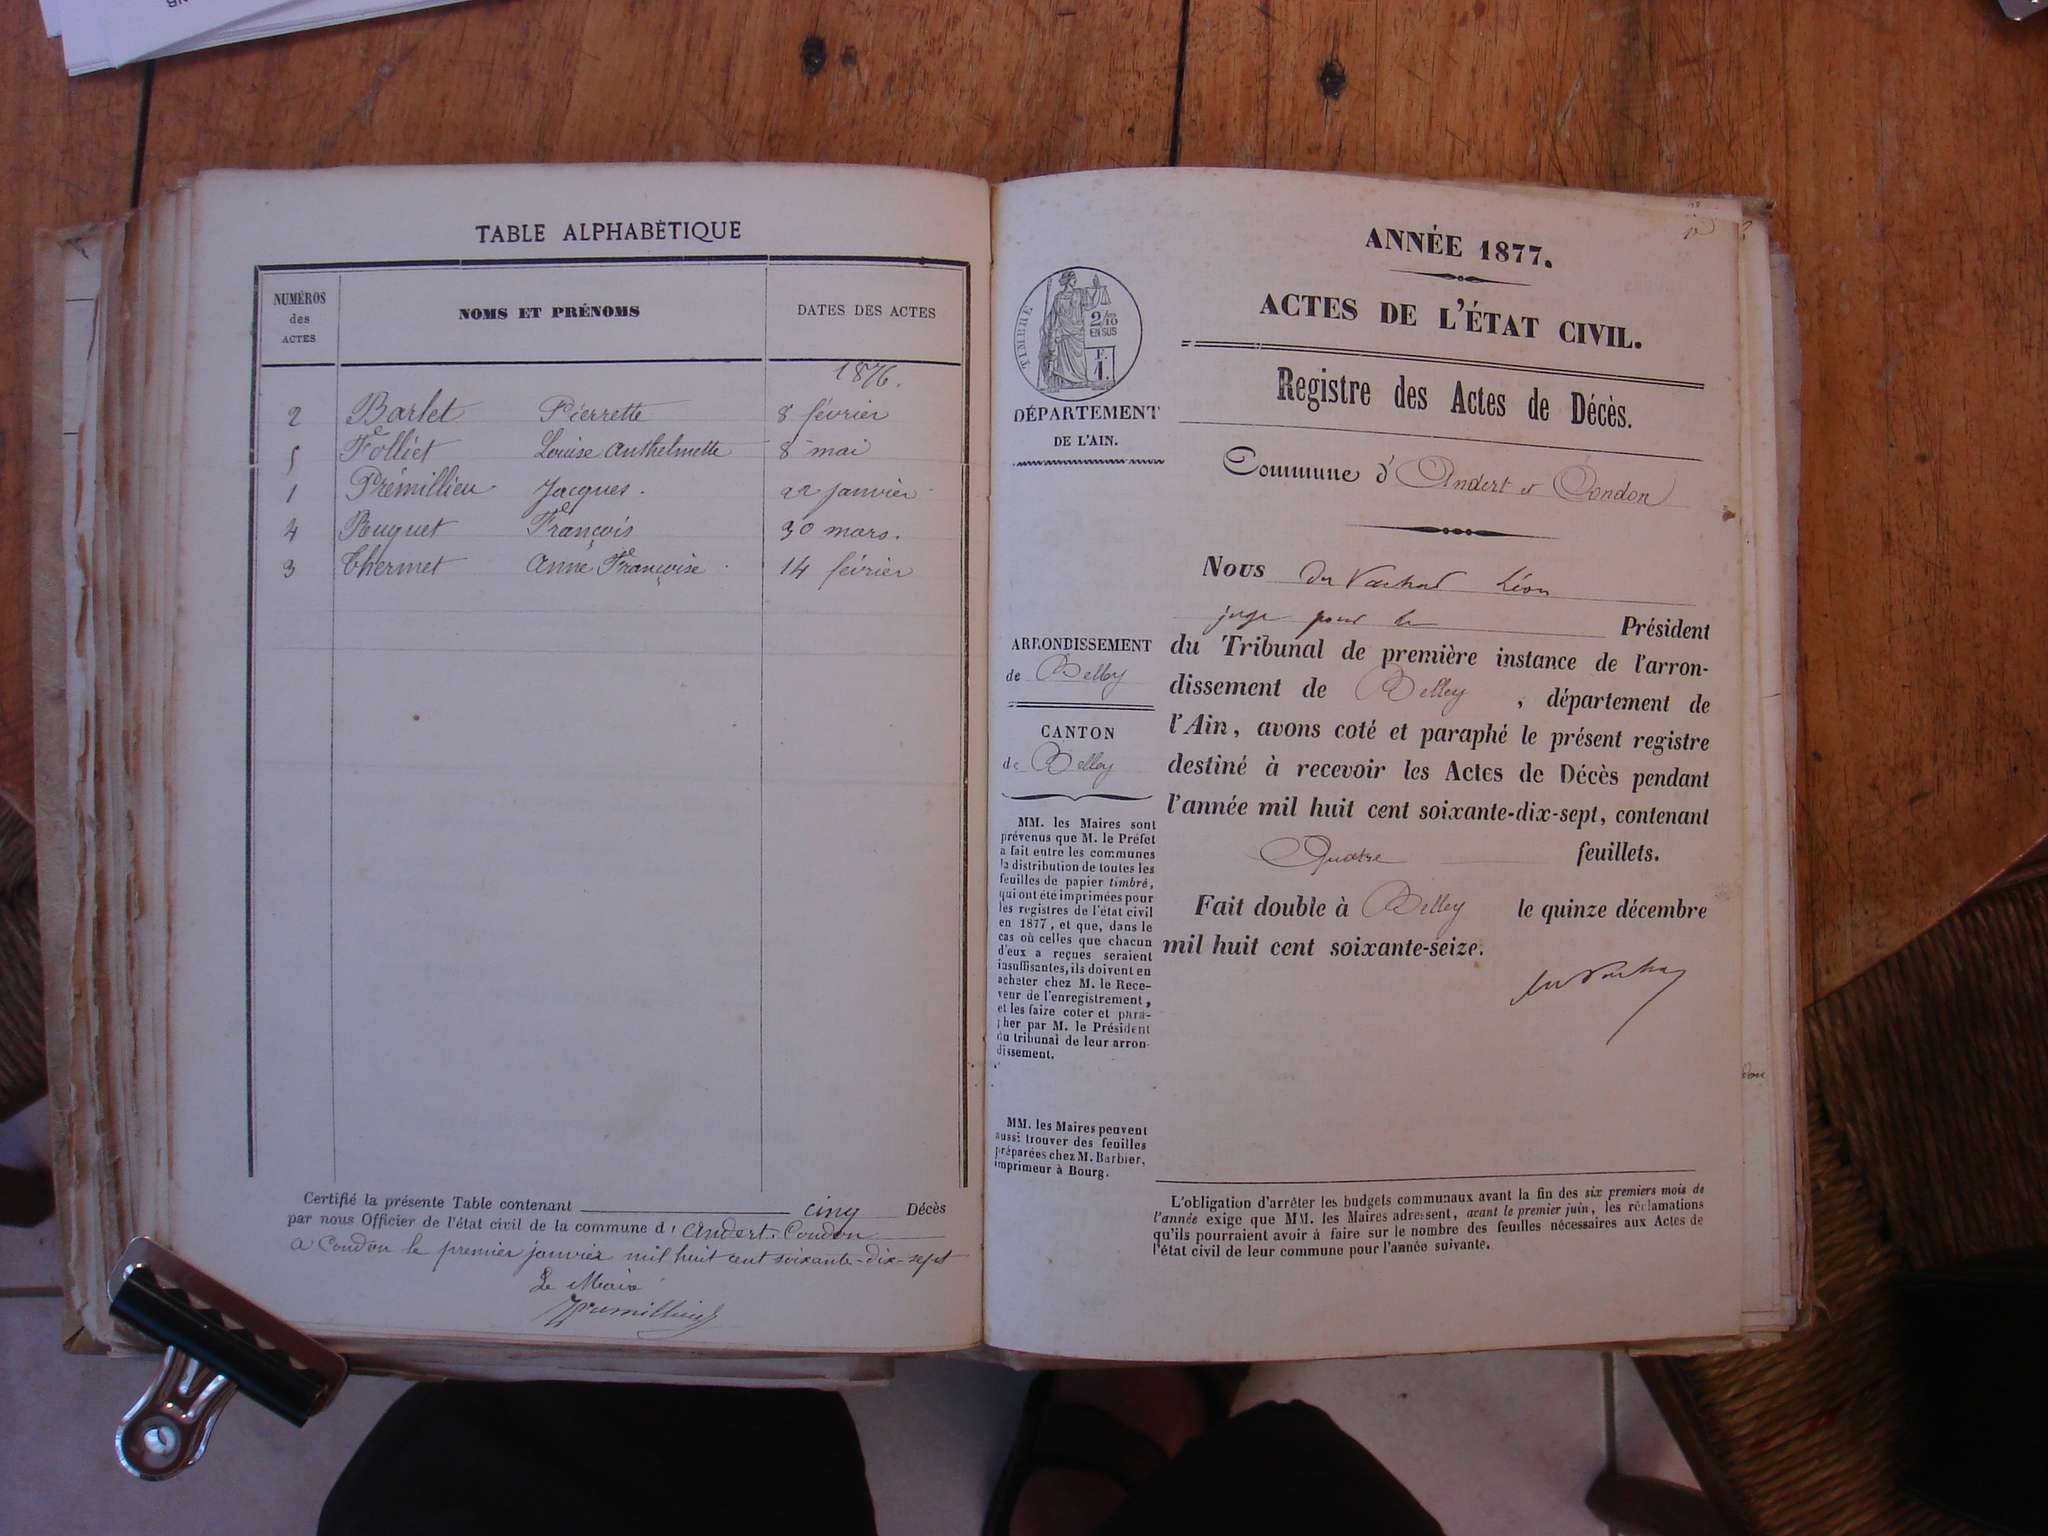 TABLE ALPHABÈTIQUE
NUMÉROS
des
ACTES
NOMS ET PRÉNOMS
DATES DES ACTES
1876.
2 Barlet Pierrette 8 février
5 Folliet Louise Anthelmette 8 mai
1 Prémillieu Jacques. 22 janvier
4 François 30 mars.
3 Thermet Anne Françoise 14 février
Certifié la présente Table contenant cinq Décès
par nous Officier de l'état civil de la commune d' Andert-Condon
A Condon le premier janvier mil huit cent soixante-dix-sept
Le Maire
Prémillieu
ANNÉE 1877.
ACTES DE L'ÉTAT CIVIL.
TIMBRE
2/10
EN SUS
F.
1.
DÉPARTEMENT
DE L'AIN.
Registre des Actes de Décès.
Commune d' Andert et Condon
Nous Léon
juge pour le Président
du Tribunal de première instance de l'arron-
dissement de Belley, département de
l'Ain, avons coté et paraphé le présent registre
destiné à recevoir les Actes de Décès pendant
l'année mil huit cent soixante-dix-sept, contenant
Quatre feuillets.
Fait double à Belley le quinze décembre
mil huit cent soixante-seize.
ARRONDISSEMENT
de Belley
CANTON
de Belley
MM. les Maires sont
prévenus que M. le Préfet
a fait entre les communes
la distribution de toutes les
feuilles de papier timbré,
qui ont été imprimées pour
les registres de l'état civil
en 1877, et que, dans le
cas où celles que chacun
d'eux a reçues seraient
insuffisantes, ils doivent en
acheter chez M. le Rece-
veur de l'enregistrement,
et les faire coter et para-
pher par M. le Président
du tribunal de leur arron-
dissement.
MM. les Maires peuvent
aussi trouver des feuilles
préparées chez M. Barbier,
imprimeur à Bourg.
L'obligation d'arrêter les budgets communaux avant la fin des six premiers mois de
l'année exige que MM. les Maires adressent, avant le premier juin, les réclamations
qu'ils pourraient avoir à faire sur le nombre des feuilles nécessaires aux Actes de
l'état civil de leur commune pour l'année suivante.